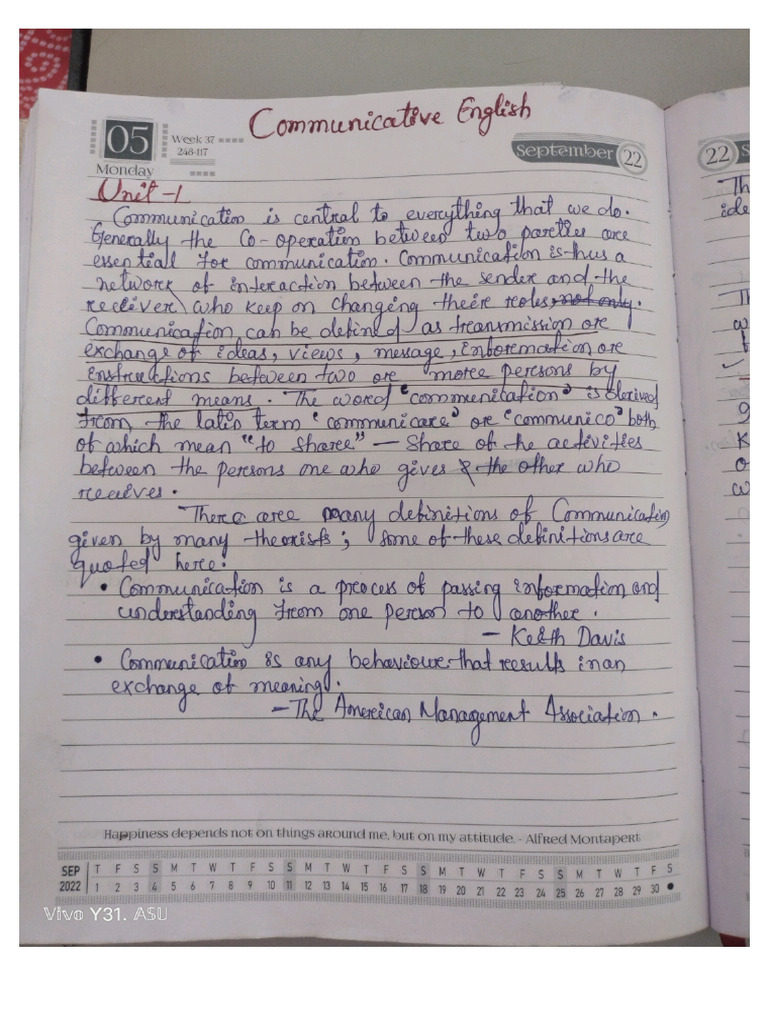 Communicative English
05
Week 37
248-117
Monday
September 22
Unit-1
Communication is central to everything that we do.
Generally the Co-operation between two parties are
essential for communication. Communication is thus a
network of interaction between the sender and the
receiver who keep on changing their roles, not only.
Communication can be defined as transmission or
exchange of ideas, views, message, information or
instructions between two or more persons by
different means. The word "communication" is derived
from the latin term 'communicare' or 'communico' both
of which mean "to share" — Share of the activities
between the persons one who gives & the other who
receives.
There are many definitions of Communication
given by many theorists; some of these definitions are
quoted here.
• Communication is a process of passing information and
understanding from one person to another.
- Keith Davis
• Communication is any behaviour that results in an
exchange of meaning.
- The American Management Association.
Happiness depends not on things around me, but on my attitude. - Alfred Montapert
SEP T F S S M T W T F S S M T W T F S S M T W T F S S M T W T F S
2022 1 2 3 4 5 6 7 8 9 10 11 12 13 14 15 16 17 18 19 20 21 22 23 24 25 26 27 28 29 30
Vivo Y31. ASU
22 S
Th
ide
Th
w
g
K
o
w